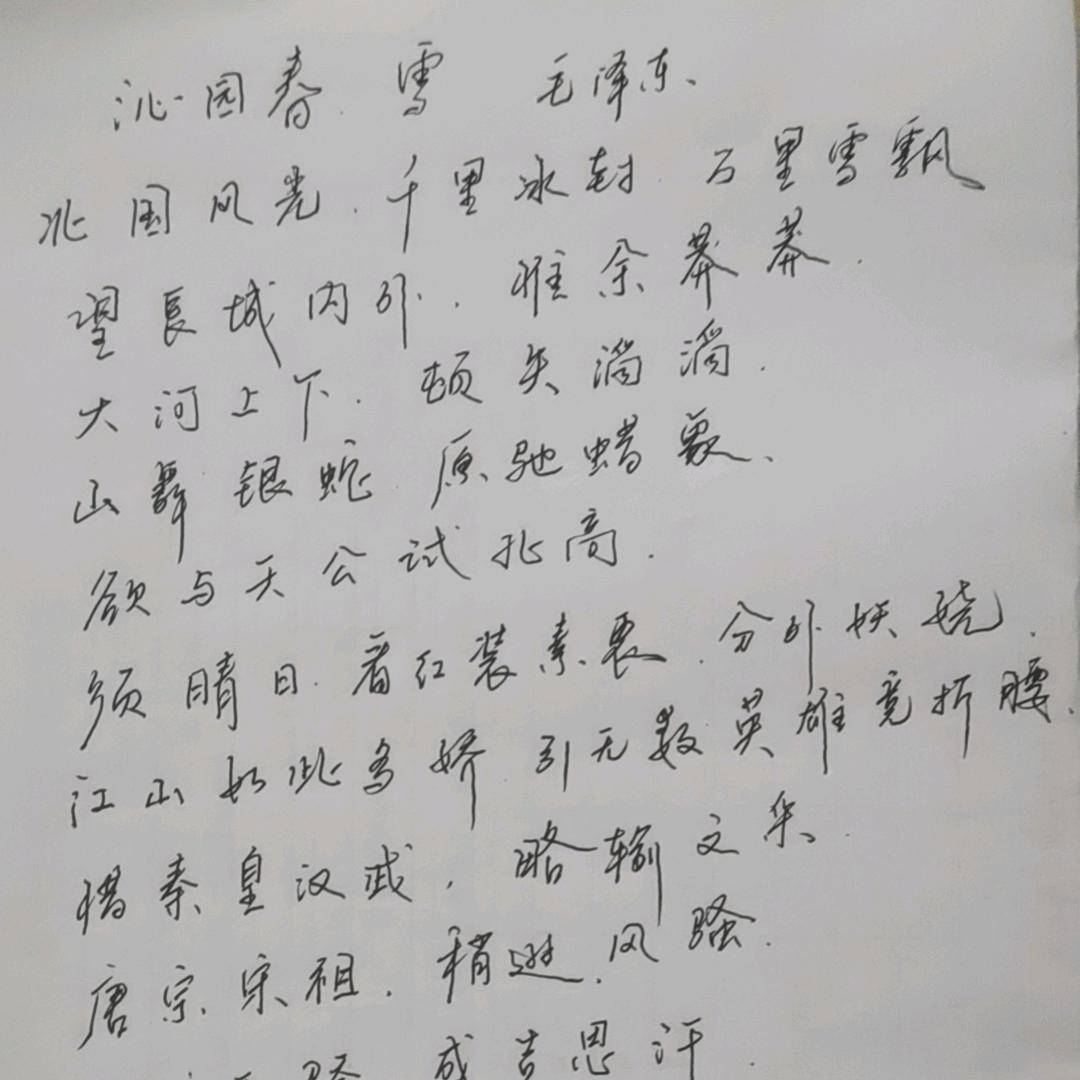 沁园春.雪 毛泽东、
北国风光.千里冰封.万里雪飘
望長城内外.惟余莽莽.
大河上下.顿失滔滔.
山舞银蛇 原驰蜡象、
欲与天公试比高.
须晴日.看红装素裹.分外妖娆.
江山如此多娇 引无数英雄竞折腰.
惜秦皇汉武,略输文采.
唐宗宋祖.稍逊风骚.
成吉思汗.